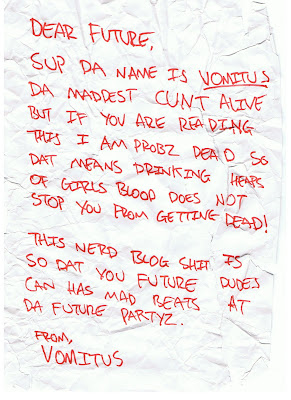 DEAR FUTURE,
SUP DA NAME IS VOMITUS
DA MADDEST CUNT ALIVE
BUT IF YOU ARE READING
THIS I AM PROBZ DEAD SO
DAT MEANS DRINKING HEAPS
OF GIRLS BLOOD DOES NOT
STOP YOU FROM GETTING DEAD!
THIS NERD BLOG SHIT IS
SO DAT YOU FUTURE DUDES
CAN HAS MAD BEATS AT
DA FUTURE PARTYZ.
FROM,
VOMITUS